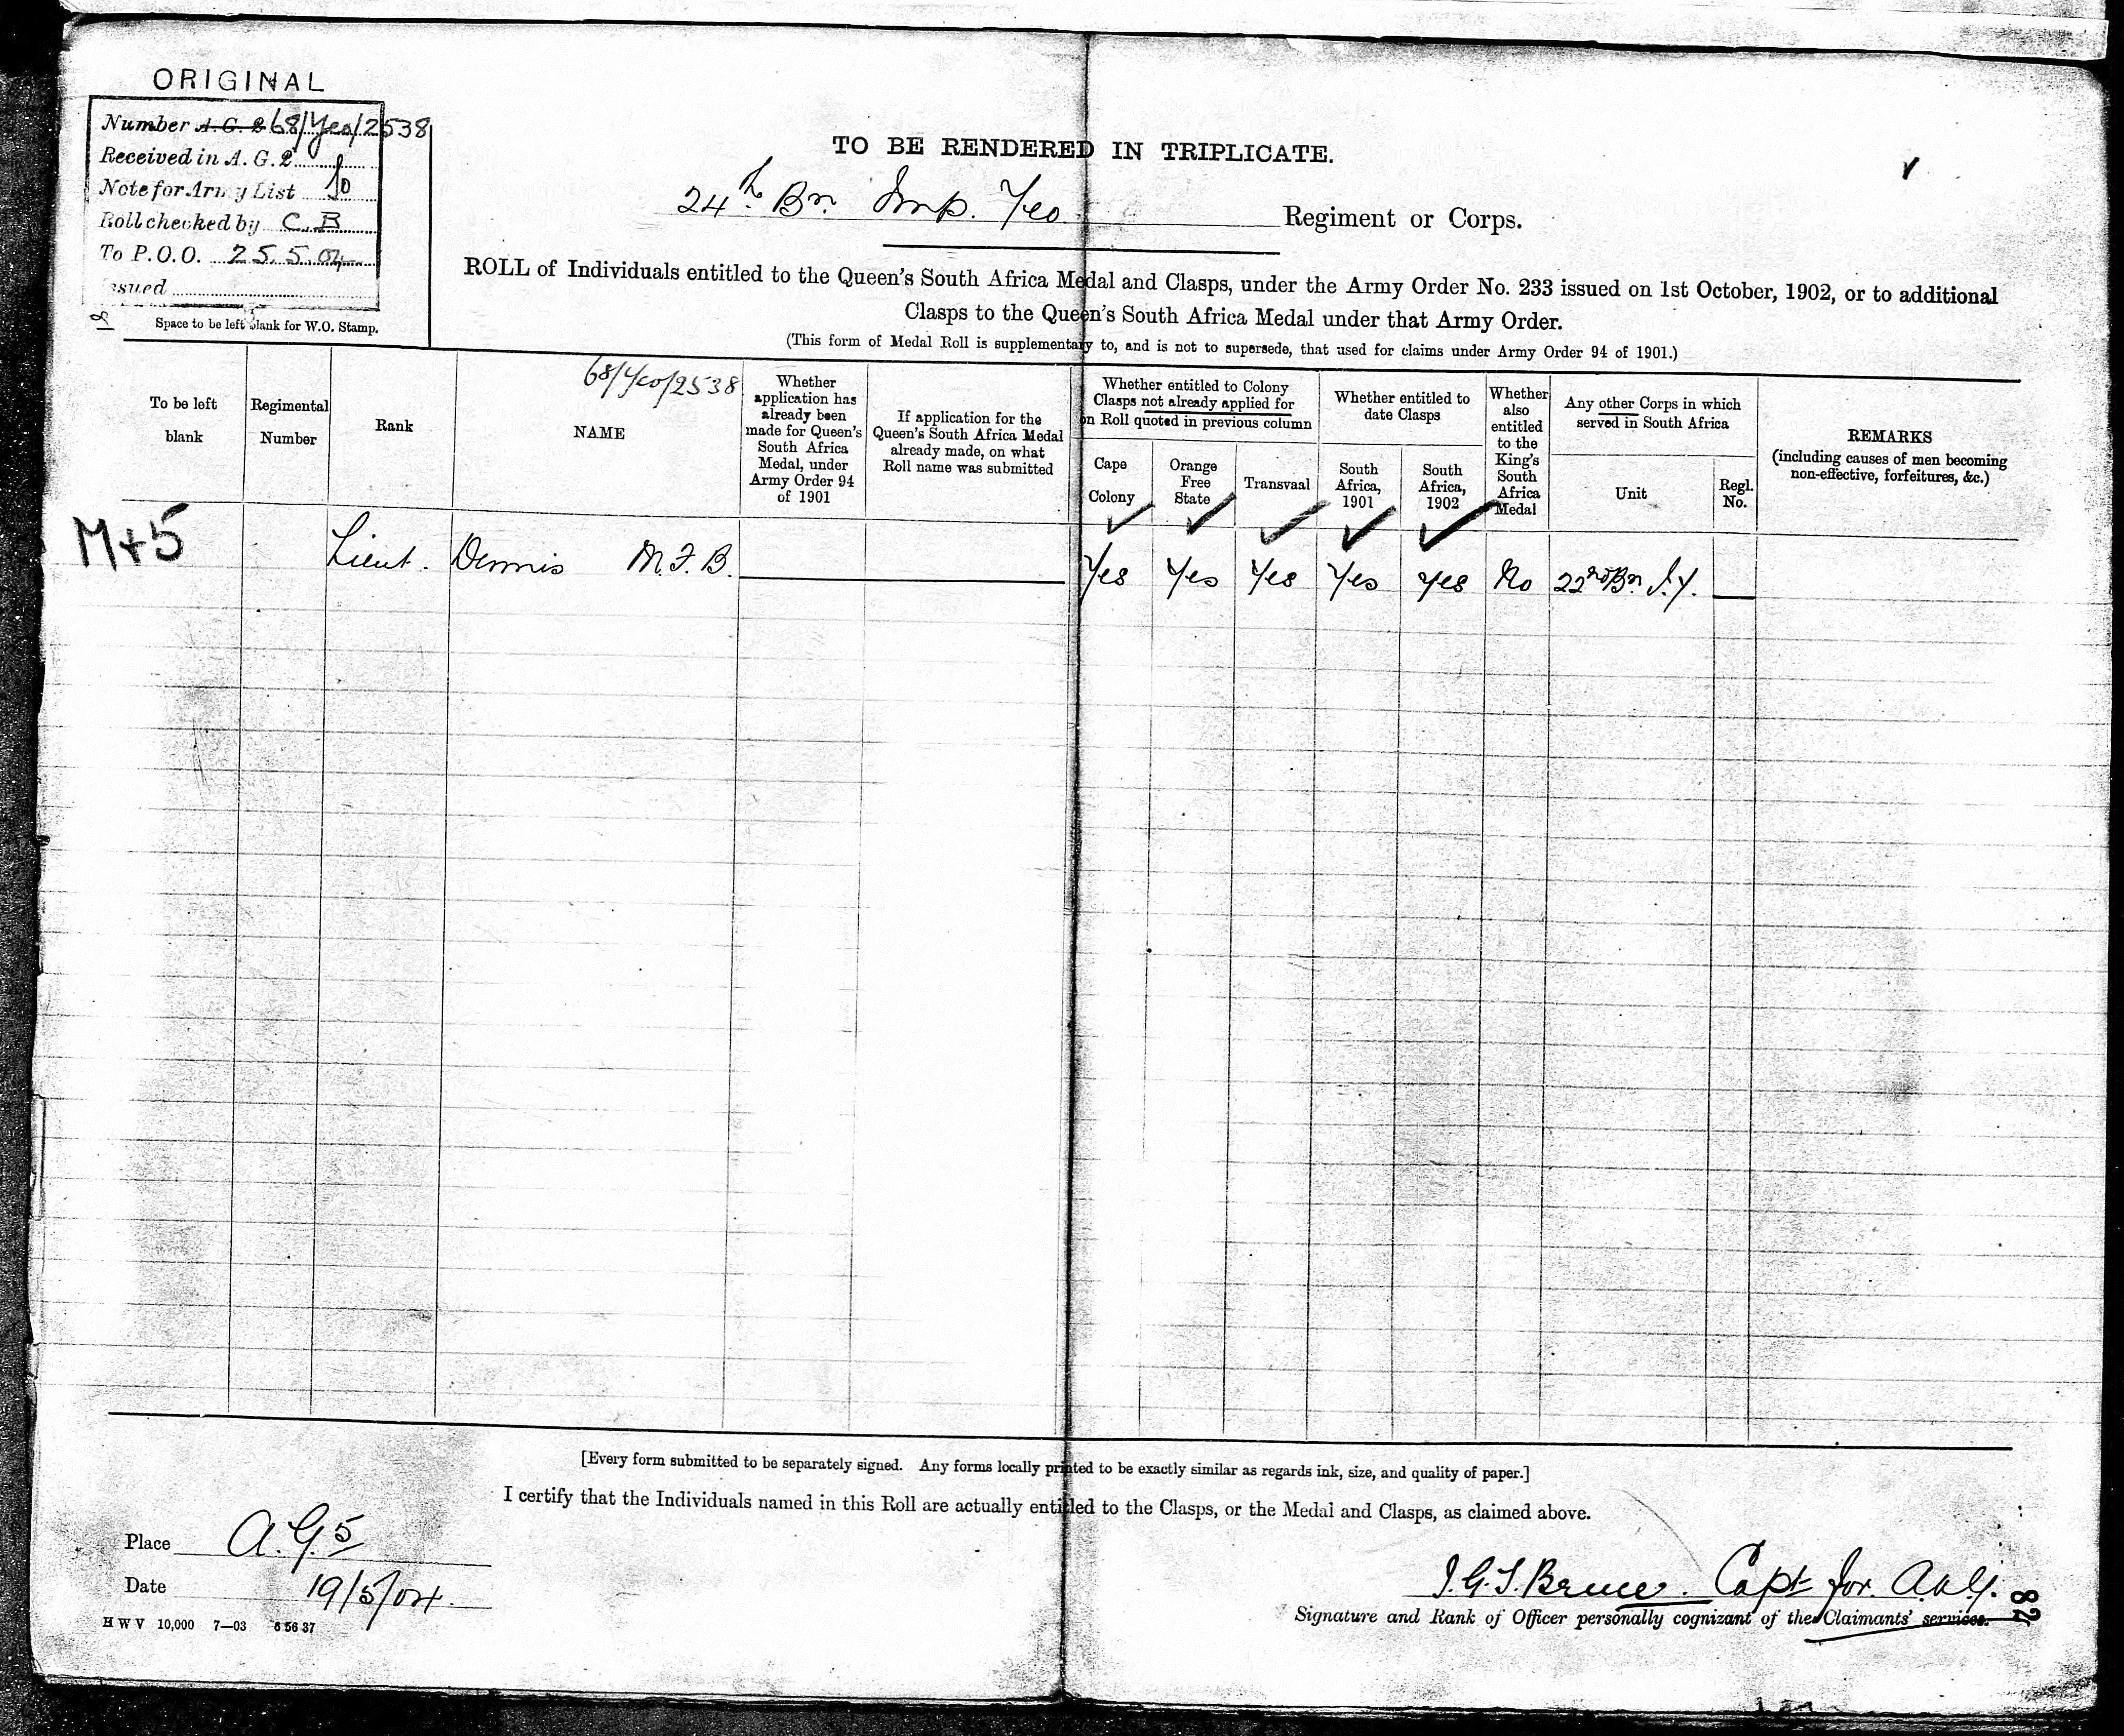 ORIGINAL
Number A.G. 2 68/Yeo/2538
Received in A.G. 2
Note for Army List
Roll checked by C.B
To P.O.O. 25.5.04
Issued
Space to be left blank for W.O. Stamp.
TO BE RENDERED IN TRIPLICATE.
24th Bn. Imp. Yeo. Regiment or Corps.
ROLL of Individuals entitled to the Queen's South Africa Medal and Clasps, under the Army Order No. 233 issued on 1st October, 1902, or to additional
Clasps to the Queen's South Africa Medal under that Army Order.
(This form of Medal Roll is supplementary to, and is not to supersede, that used for claims under Army Order 94 of 1901.)
To be left
blank
Regimental
Number
Rank
68/Yeo/2538
NAME
Whether
application has
already been
made for Queen's
South Africa
Medal, under
Army Order 94
of 1901
If application for the
Queen's South Africa Medal
already made, on what
Roll name was submitted
Whether entitled to Colony
Clasps not already applied for
on Roll quoted in previous column
Cape
Colony
Orange
Free
State
Transvaal
Whether entitled to
date Clasps
South
Africa,
1901
South
Africa,
1902
Whether
also
entitled
to the
King's
South
Africa
Medal
Any other Corps in which
served in South Africa
Unit
Regl.
No.
REMARKS
(including causes of men becoming
non-effective, forfeitures, &c.)
M+5 Lieut. Dennis M.F.B. Yes Yes Yes Yes Yes No 22nd Bn. I.Y.
[Every form submitted to be separately signed. Any forms locally printed to be exactly similar as regards ink, size, and quality of paper.]
I certify that the Individuals named in this Roll are actually entitled to the Clasps, or the Medal and Clasps, as claimed above.
Place A.G.5
Date 19/5/04.
H W V 10,000 7—03 6 56 37
J.G.S. Bruce. Capt for A.A.G.
Signature and Rank of Officer personally cognizant of the Claimants' services.
82